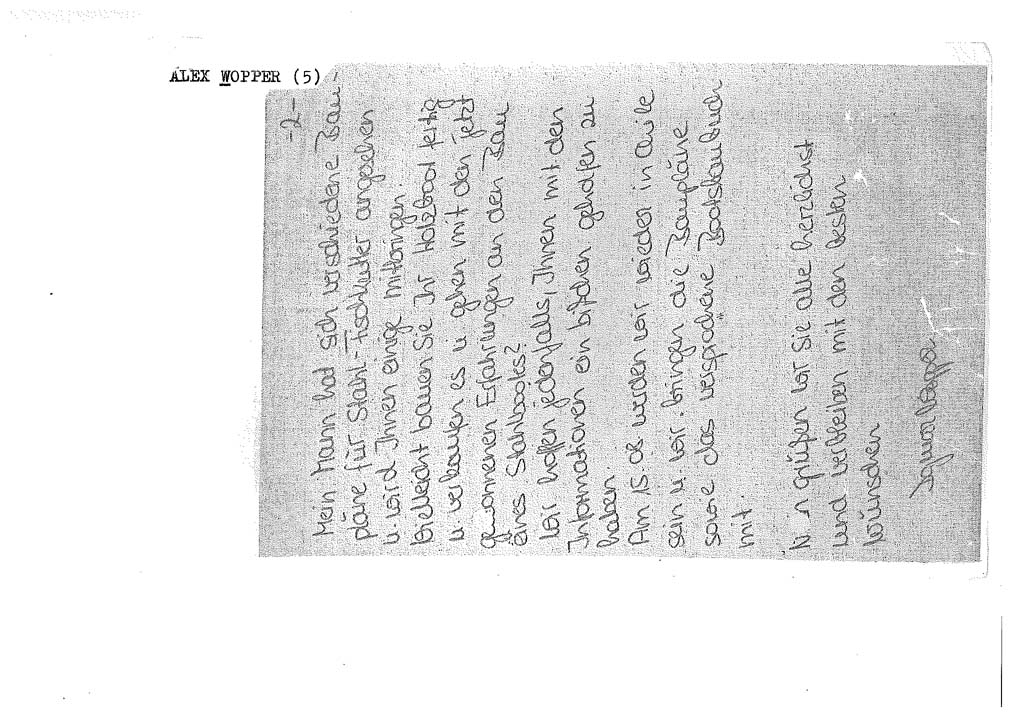 ALEX WOPPER (5)
-2-
Mein Mann hat sich verschiedene Bau-
pläne für Stahl-Fischkutter angesehen
u. wird Ihnen einige mitbringen.
Vielleicht bauen Sie Ihr Holzboot fertig
u. verkaufen es u. gehen mit den jetzt
gewonnenen Erfahrungen an den Bau
eines Stahlbootes?
Wir hoffen jedenfalls, Ihnen mit den
Informationen ein bißchen geholfen zu
haben.
Am 15.08 werden wir wieder in Chile
sein u. wir bringen die Baupläne
sowie das versprochene Bootsbaubuch
mit.
grüßen wir Sie alle herzlichst
und verbleiben mit den besten
Wünschen